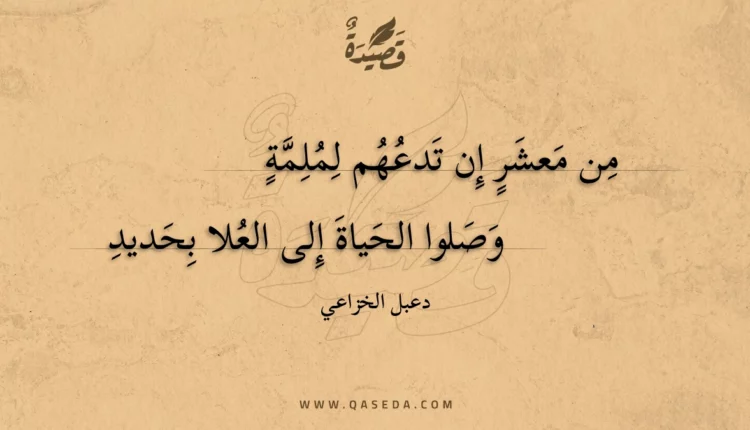 قَصِيْدَةٌ
مِن مَعشَرٍ إِن تَدعُهُم لِمُلِمَّةٍ
وَصَلوا الحَياةَ إِلى العُلا بِحَديدِ
دعبل الخزاعي
WWW.QASEDA.COM